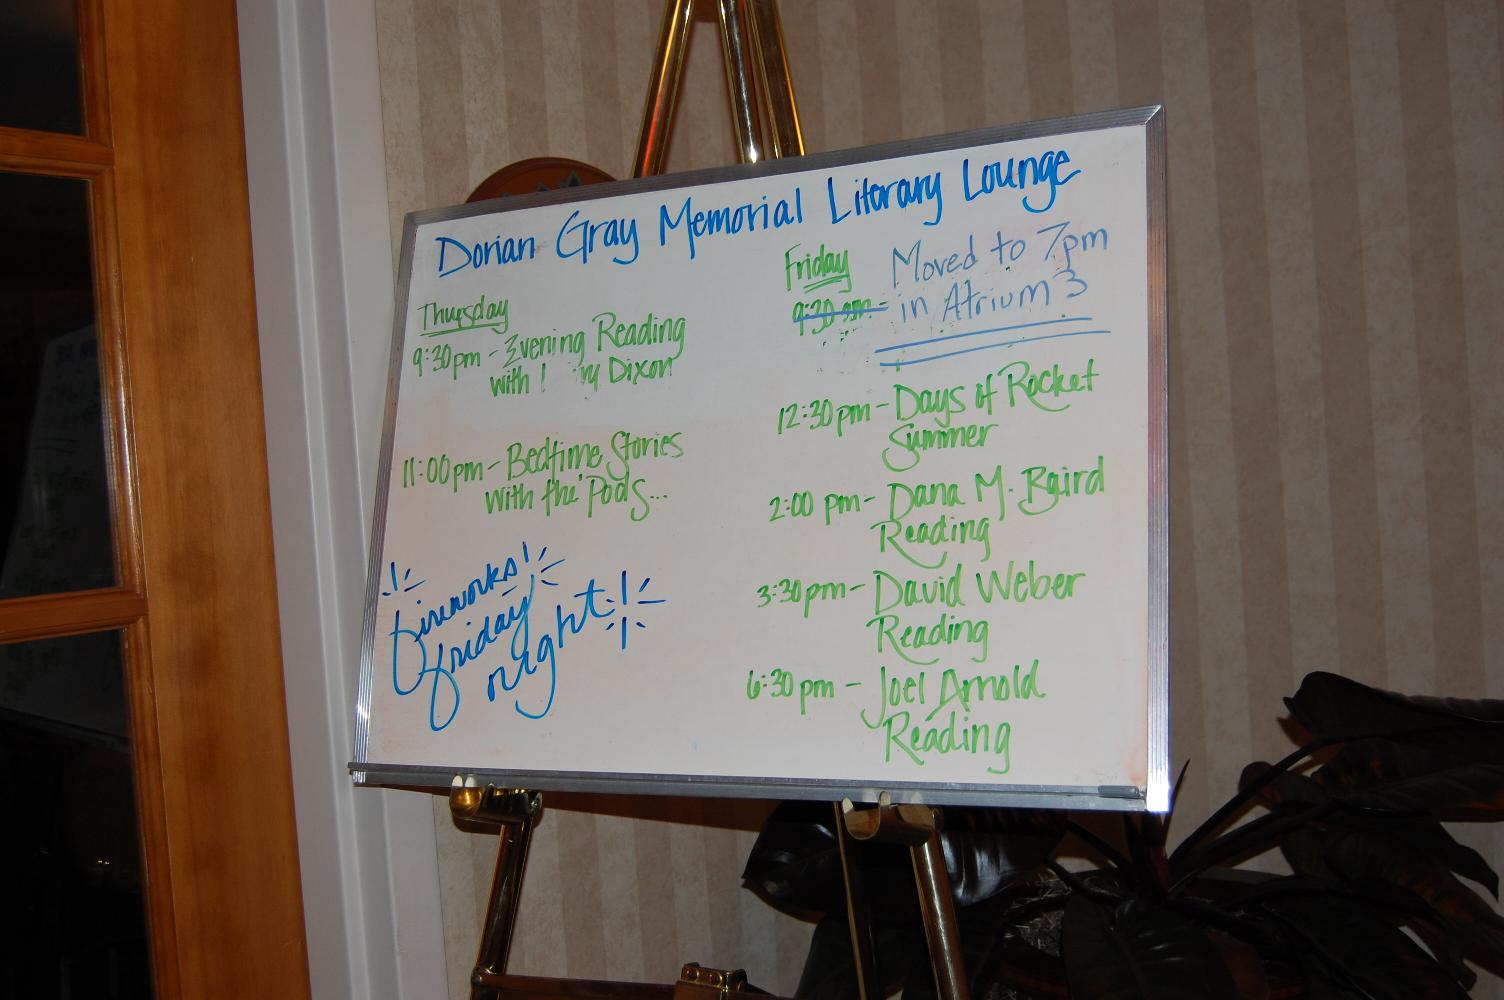 Dorian Gray Memorial Literary Lounge
Thursday
9:30pm - Evening Reading
with Dixon
11:00pm - Bedtime Stories
with the Pods...
fireworks!
friday
night!
Friday
9:30 am - Moved to 7pm
in Atrium 3
12:30pm - Days of Rocket
Summer
2:00 pm - Dana M. Baird
Reading
3:30pm - David Weber
Reading
6:30 pm - Joel Arnold
Reading